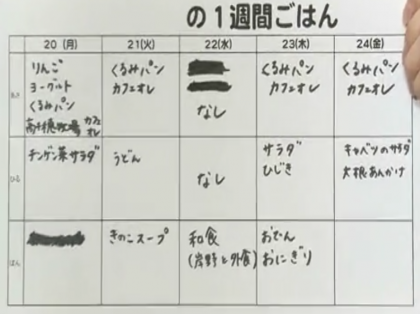 の1週間ごはん
20(月) 21(火) 22(水) 23(木) 24(金)
あさ
りんご
ヨーグルト
くるみパン
高千穂牧場カフェオレ
くるみパン
カフェオレ
なし
くるみパン
カフェオレ
くるみパン
カフェオレ
ひる
チンゲン菜サラダ
うどん
なし
サラダ
ひじき
キャベツのサラダ
大根あんかけ
ばん
きのこスープ
和食
(岸野と外食)
おでん
おにぎり